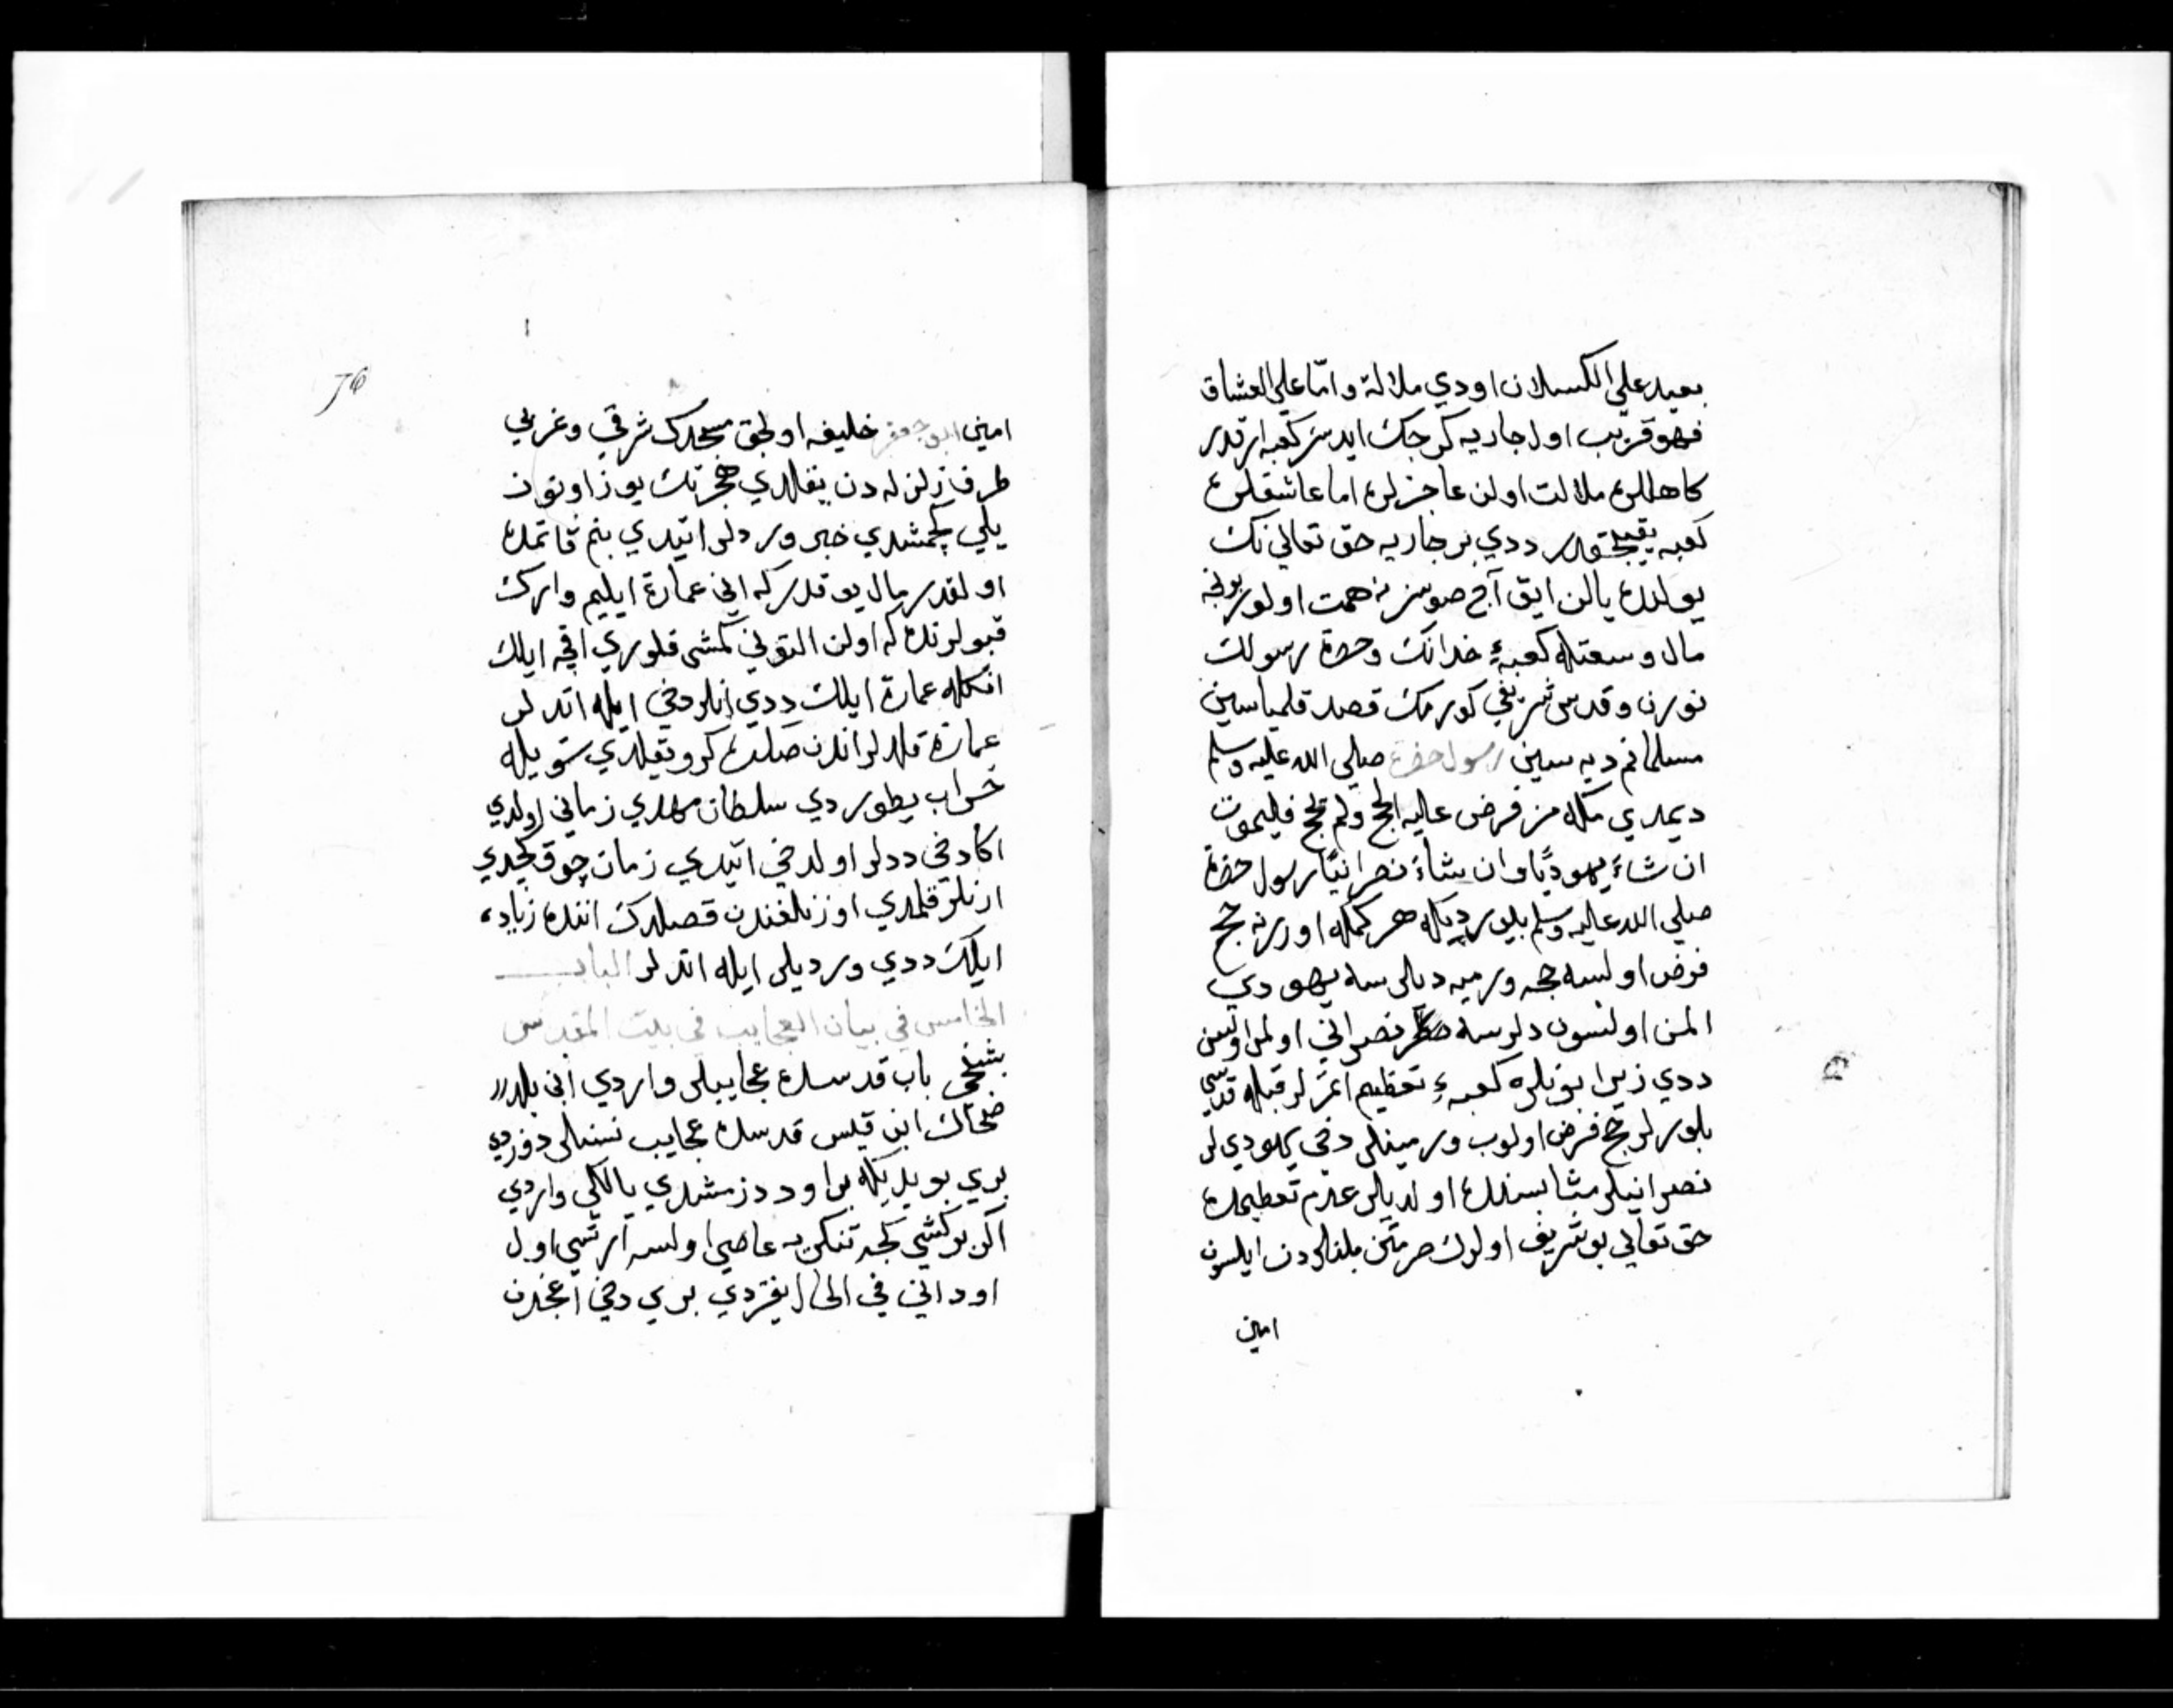 بعيد علي الكسلان اودي ملالة وامّا علي العشاق
فهو قريب اول جاريه كرجك ايدسز كعبه ارقدر
كاهللره ملالت اولن عاجزلره اما عاشقلره
كعبه يقيندر ددي بر جاريه حق تعالي نك
يولنده يالن ايق آج صوسز نه همت اولور بونجه
مال وسعتله كعبهء خدانك وحضرة رسولك
نورن وقدس شريفي كورمك قصد قلمياسين
مسلمانم ديه سين رسول حضرة صلي الله عليه وسلم
ديمدي مكله من فرض عليه الحج ولم يحج فليموت
ان شاءَ يهوديًا وان شاءَ نصرانيًا رسول حضرة
صلي الله عليه وسلم بيلور ديكله هر كمكه اوزرنه حج
فرض اولسه حجه ورميه ديلرسه يهودي
المن اولسون دلرسه نصراني اولمن اولسون
ددي زيرا بونلره كعبهء تعظيم اتمزلر قبله قدسي
بلورلر حج فرض اولوب ورمينلر دخي يهوديلر
نصرانيلر مثابسنده اولديلر عدم تعظيمده
حق تعالي بو شريف اولرك حرمتن بلنلردن ايلسون
امين
76
امين ابو جعفر خليفه اولجق مسجدك شرقي وغربي
طرف زلزله دن يقلدي هجرتك يوز اوتون
يلي كچمشدي خبر وردلر ايتدي بنم قاتمده
اولقدر مال يوقدر كه اني عمارة ايليم وارك
قبولرنده كه اولن التوني كمشي قلوري اقچه ايلك
انكله عمارة ايلك ددي انلر دخي ايله اتدلر
عمارة قلدلر اندن صكره كرو يقلدي شويله
خراب يطوردي سلطان مهدي زماني اولدي
اكا دخي ددلر اولدخي ايتدي زمان چوق كچدي
ارنلر قلمدي اوزنلغندن قصلدك اننده زياده
ايلك ددي ورديلر ايله اتدلر الباب
الخامس في بيان العجايب في بيت المقدس
بشنجي باب قدسده عجايبلر واردي اني بلدرر
ضحاك ابن قيس قدسده عجايب نسنلر دوزدي
بري بويديكه بر اود دزمشدي يالكي واردي
اكر بر كشي كجه تنكريه عاصي اولسه ارتسي اول
اود اني في الحال يقردي بري دخي اغجدن